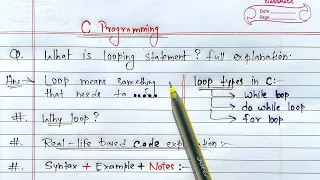 C Programming
Q. What is looping statement? full explanation.
Ans:→ Loop means something that needs to .....
loop types in C:-
→ while loop
→ do while loop
→ for loop
#. Why loop?
#. Real-life based code explanation:-
#. Syntax + Example + Notes:-
Date
Page